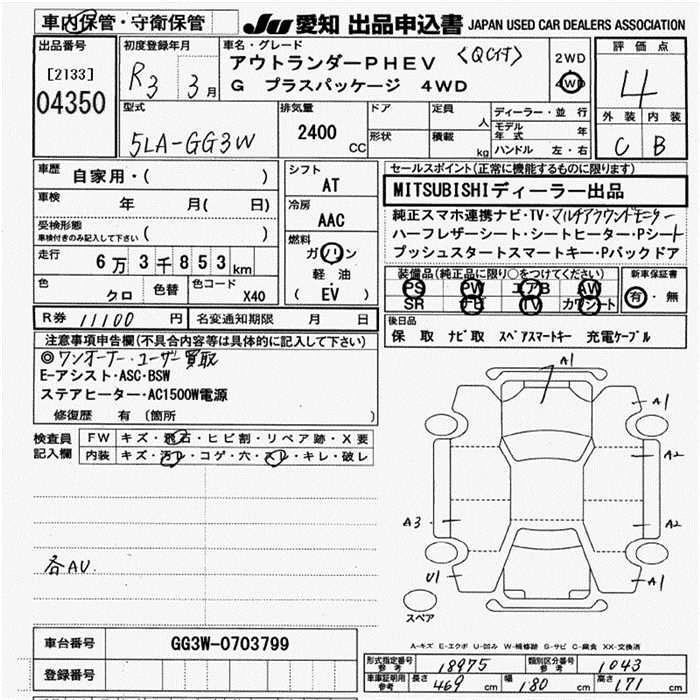 車内保管・守衛保管
JU 愛知 出品申込書 JAPAN USED CAR DEALERS ASSOCIATION
出品番号
[2133]
04350
初度登録年月
R3 3月
車名・グレード
アウトランダーPHEV 〈QC付〉
G プラスパッケージ 4WD
2WD
4WD
評価点
4
外装 内装
C B
型式
5LA-GG3W
排気量
2400 CC
ドア
形状
定員 人
積載 kg
ディーラー・並行
モデル年式 年
ハンドル 左・右
車歴 自家用・( )
車検 年 月( 日)
受検形態
車検付きのみ記入して下さい ( )
走行 6万3千853km
色 クロ
色替
色コード X40
シフト
AT
冷房
AAC
燃料
ガソリン
軽油
( EV )
セールスポイント(正常に機能するものに限ります)
MITSUBISHIディーラー出品
純正スマホ連携ナビ・TV・マルチアラウンドモニター
ハーフレザーシート・シートヒーター・Pシート
プッシュスタートスマートキー・Pバックドア
装備品(純正品に限り○をつけてください)
PS PW エアB AW
SR ナビ TV カワシート
新車保証書
有・無
R券 11100 円
名変通知期限 月 日
後日品
保 取 ナビ取 スペアスマートキー 充電ケーブル
注意事項申告欄(不具合内容等は具体的に記入して下さい)
◎ワンオーナー・ユーザー買取
E-アシスト・ASC・BSW
ステアヒーター・AC1500W電源
修復歴 有 (箇所 )
検査員記入欄
FW キズ・飛石・ヒビ割・リペア跡・X要
内装 キズ・汚レ・コゲ・穴・スレ・キレ・破レ
各AU.
A1
A1
A2
A3
A2
U1
A1
スペア
A-キズ E-エクボ U-凹み W-補修跡 S-サビ C-腐食 XX-交換済
車台番号 GG3W-0703799
登録番号
形式指定番号参考 18975
類別区分番号参考 1043
車庫証明用参考 長さ 469 cm 幅 180 cm 高さ 171 cm